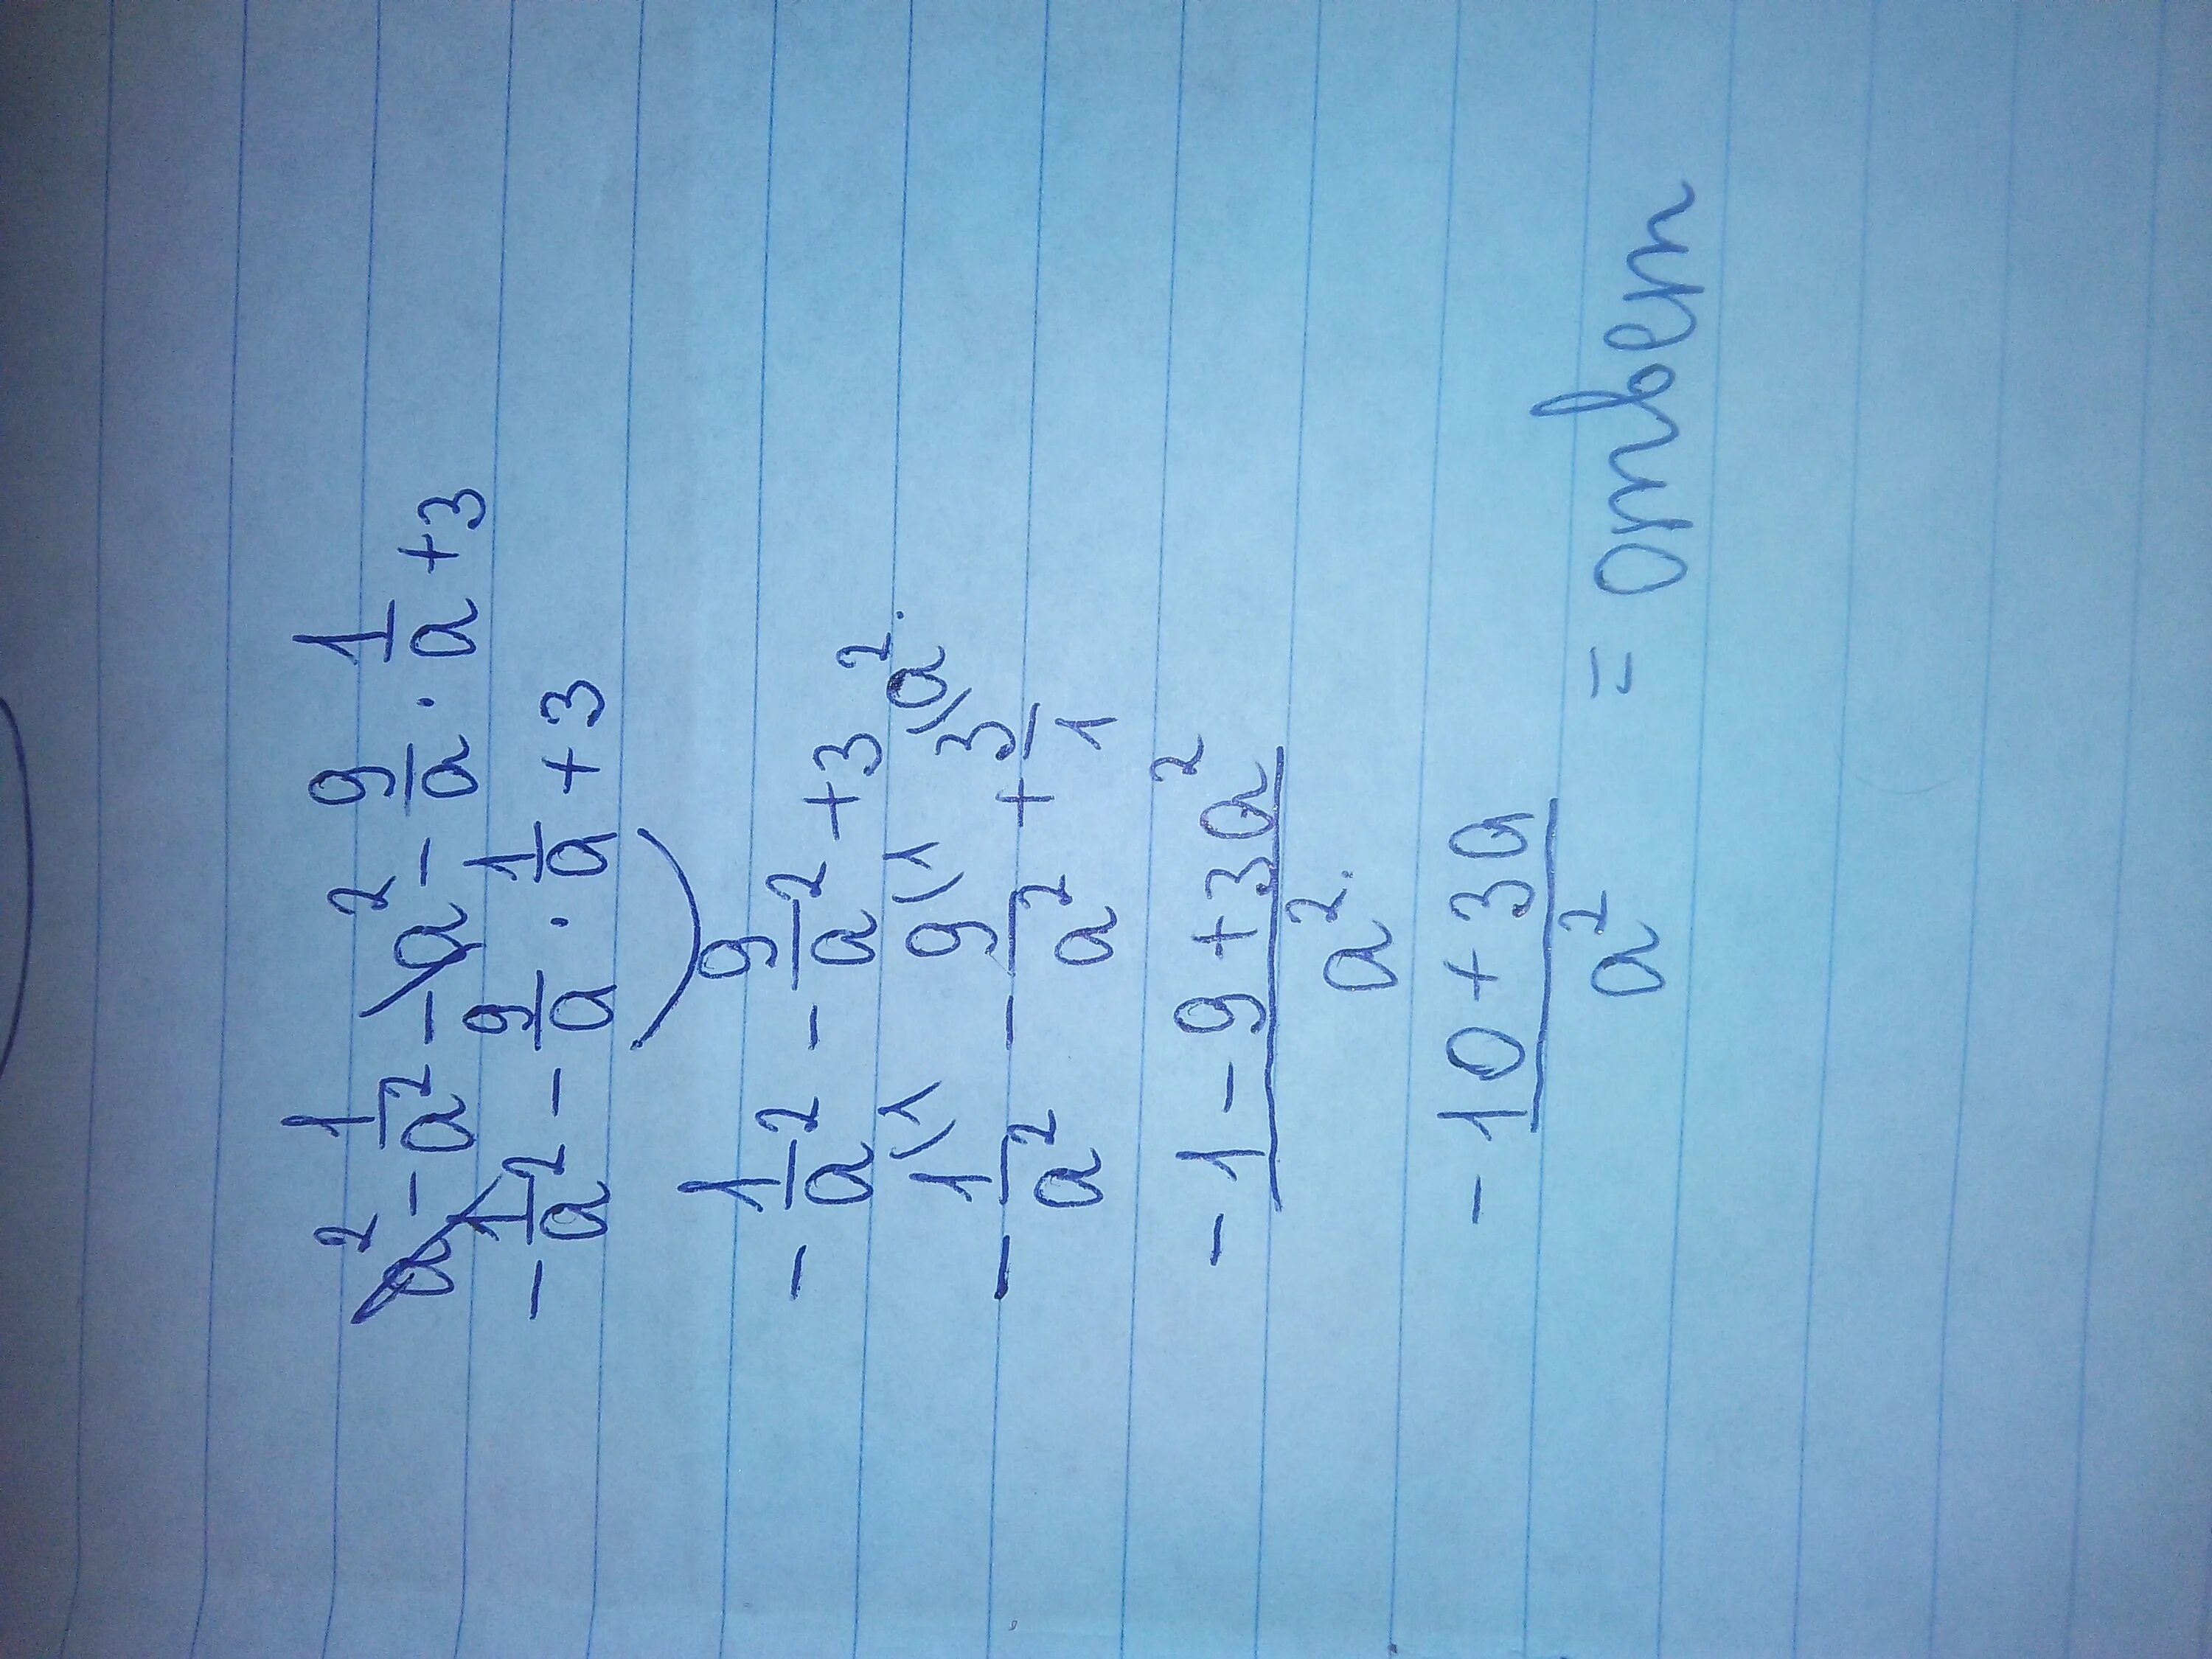 a² - 1/a² - a² - 9/a · 1/a + 3
- 1/a² - 9/a · 1/a + 3
- 1/a² - 9/a² + 3
- 1(1/a² - 9(1/a² + 3(a²/1
- 1 - 9 + 3a²/a²
- 10 + 3a/a² = ответ